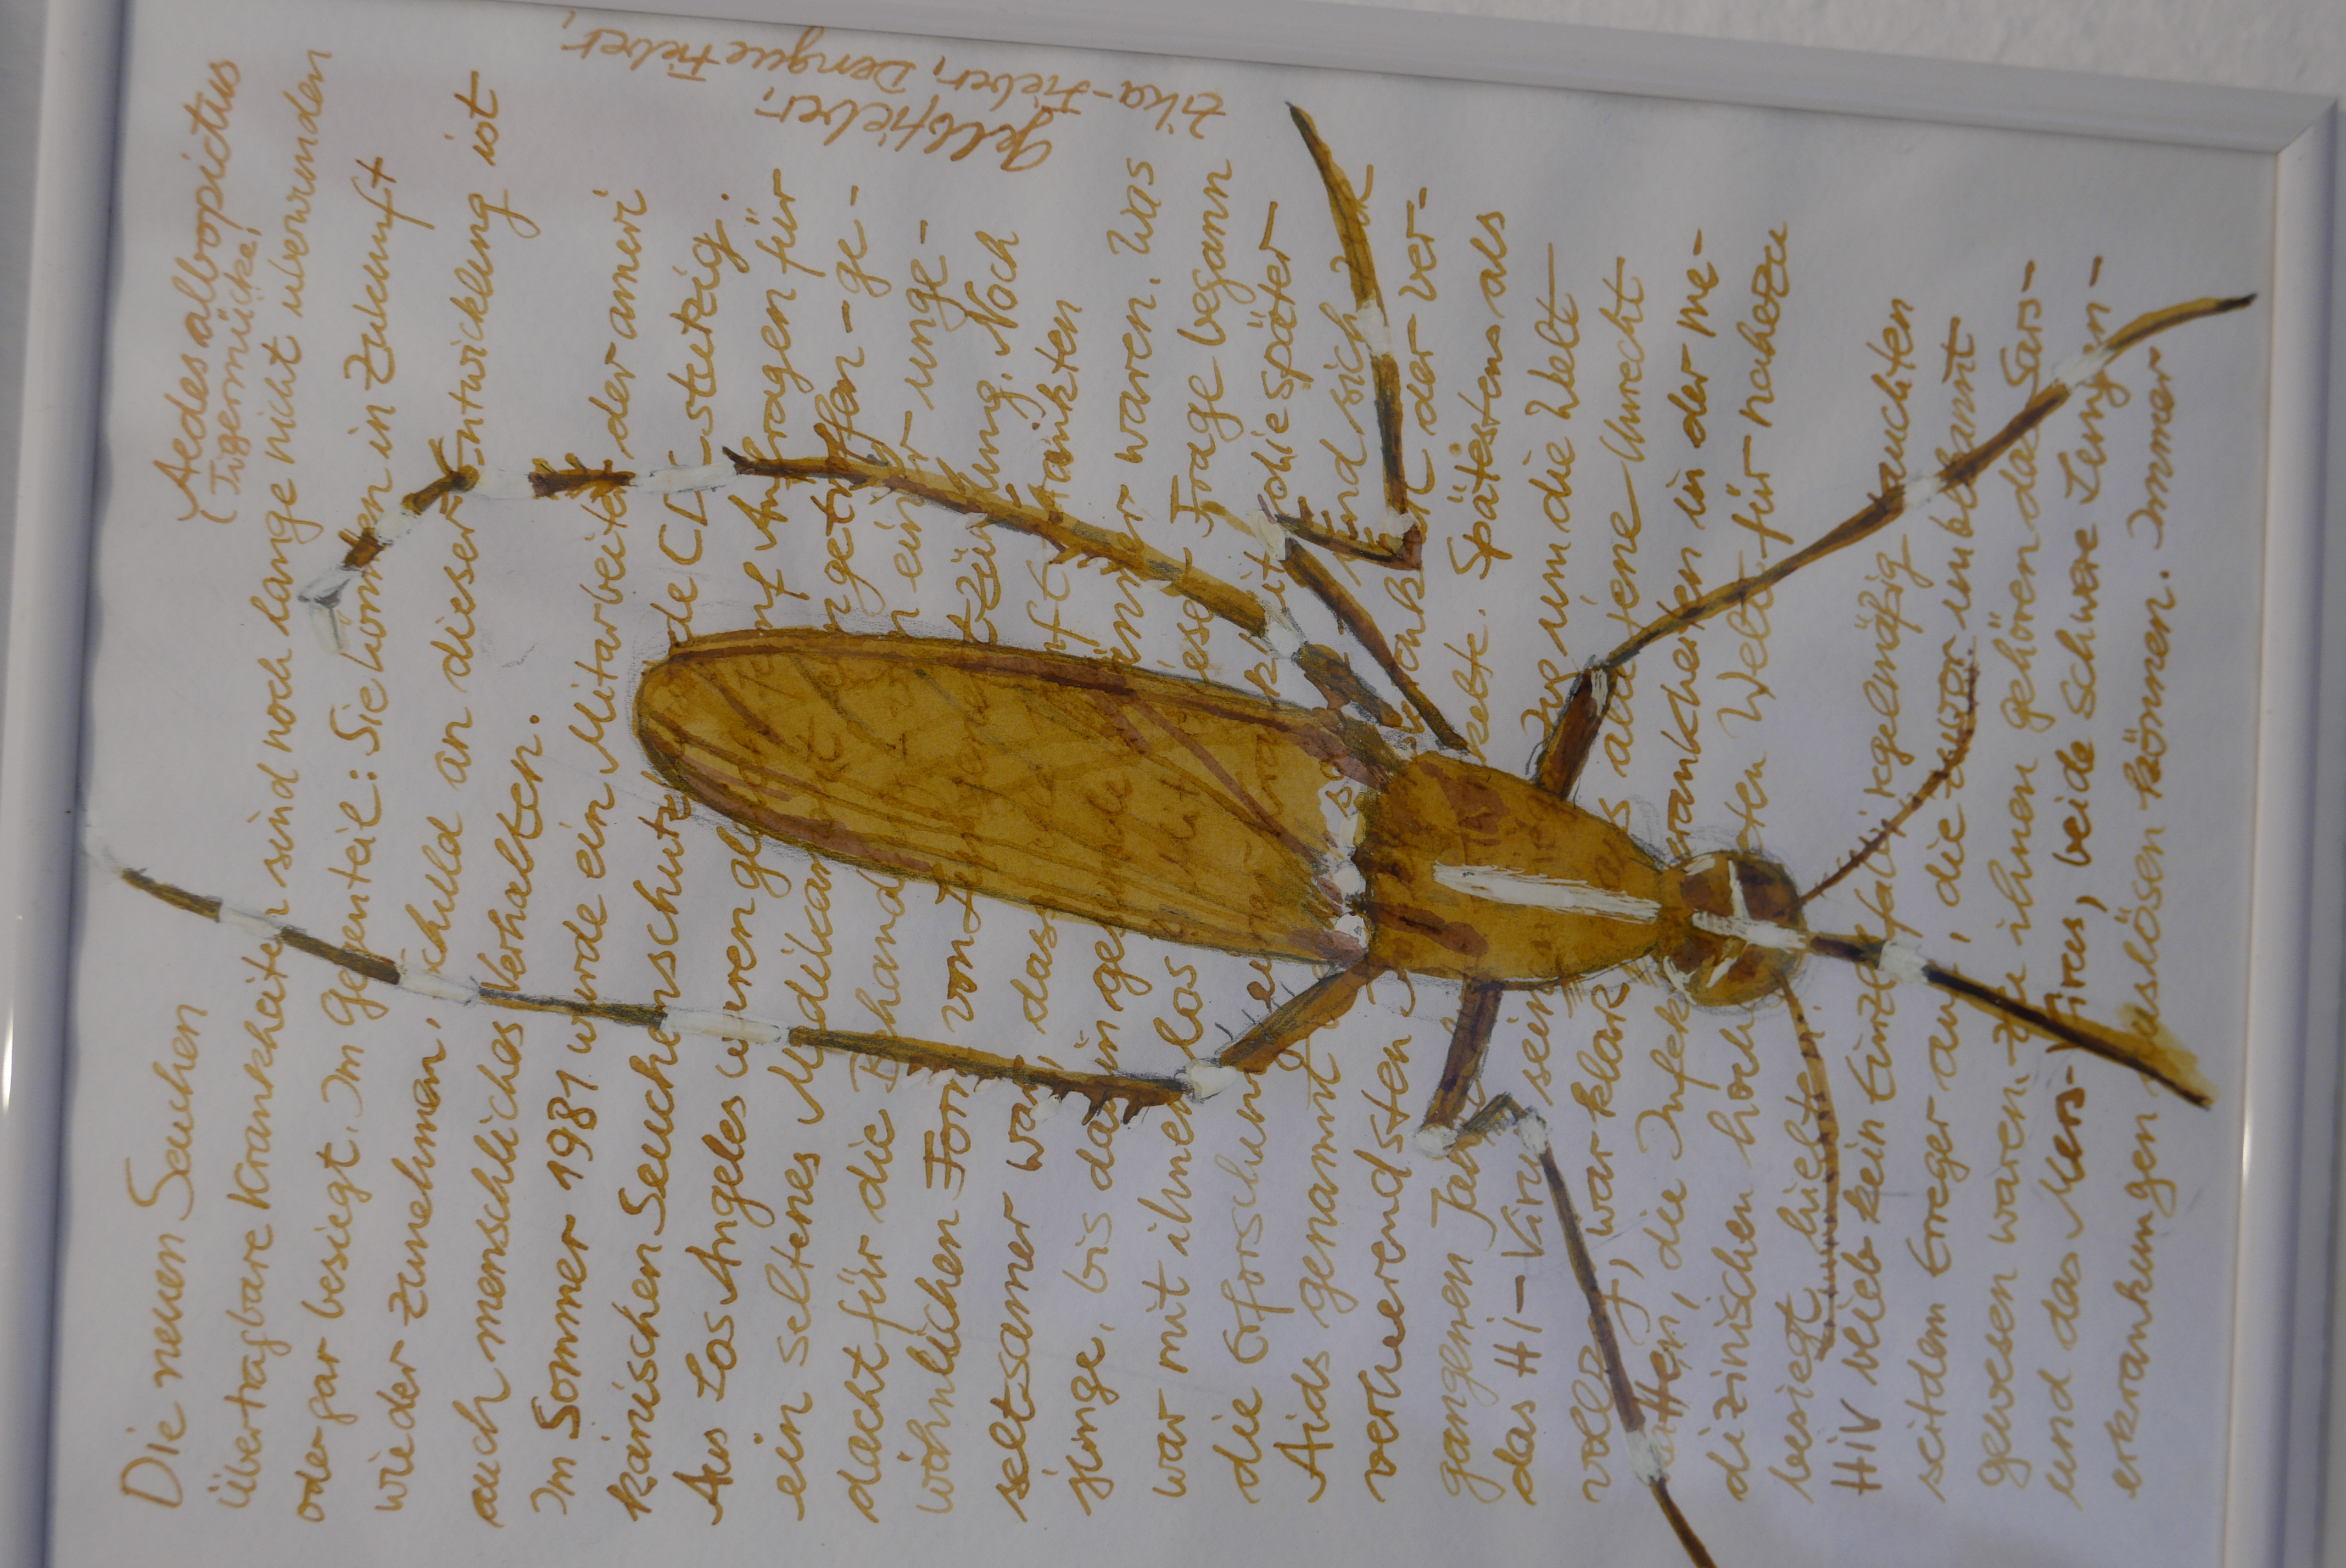 Aedes albopictus
(Tigermücke)
Die neuen Seuchen
Übertragbare Krankheiten sind noch lange nicht überwunden
oder gar besiegt. Im Gegenteil: Sie könnten in Zukunft
wieder zunehmen, schuld an dieser Entwicklung ist
auch menschliches Verhalten.
Im Sommer 1981 wurde ein Mitarbeiter der ameri
kanischen Seuchenschutzbehörde CDC stutzig.
Aus Los Angeles waren gleich fünf Anfragen für
ein seltenes Medikament eingetroffen - ge-
dacht für die Behandlung einer unge-
wöhnlichen Form von Lungenentzündung. Noch
seltsamer war, dass die fünf Erkrankten
junge, bis dahin gesunde Männer waren. Was
war mit ihnen los? Mit dieser Frage begann
die Erforschung einer Krankheit, die später
Aids genannt und sich
verheerendsten der ver-
gangenen Jahr entwickelte. Spätestens als
das Hi-Virus seinen Zug um die Welt
vollzog, war klar, dass all jene Unrecht
hatten, die Infektionskrankheiten in der me-
dizinischen hoch Welt für nahezu
besiegt hielten.
HIV blieb kein Einzelfall: regelmäßig tauchten
seitdem Erreger auf, die zuvor unbekannt
gewesen waren. Zu ihnen gehören das Sars-
und das Mers-Virus, beide schwere Lungen-
erkrankungen auslösen können. Immer
Gelbfieber,
Zika-Fieber, Dengue Fieber,